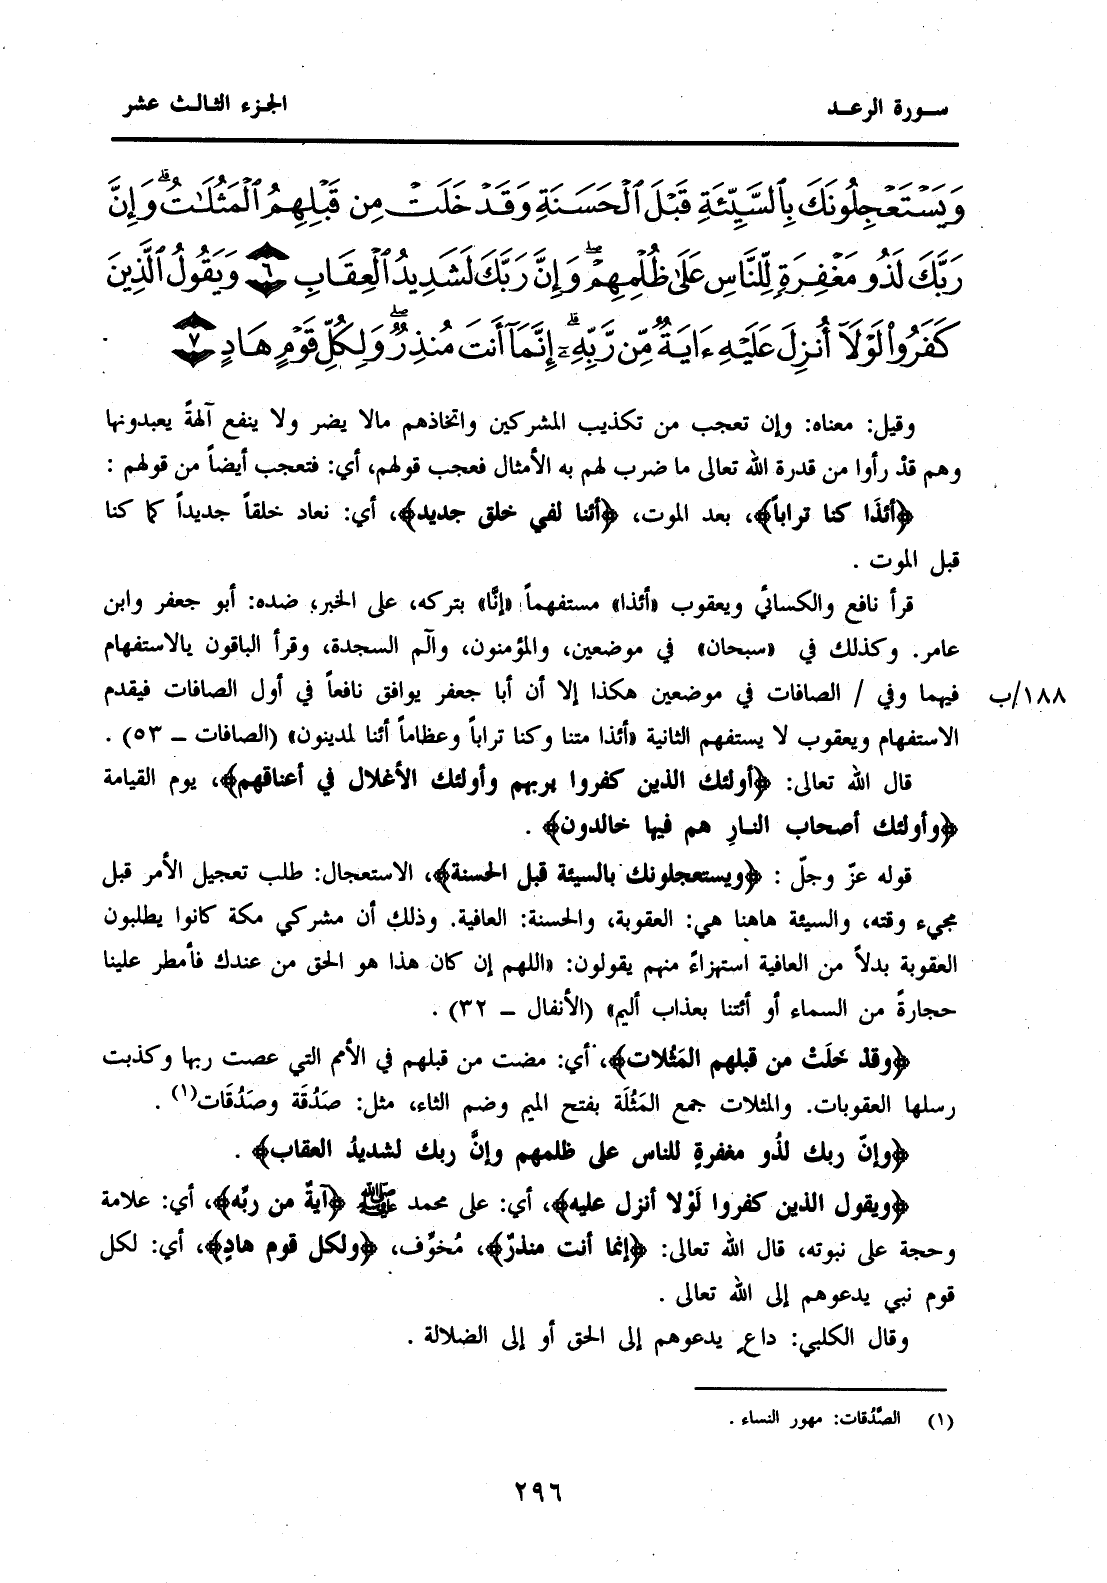 سورة الرعد
الجزء الثالث عشر
وَيَسْتَعْجِلُونَكَ بِٱلسَّيِّئَةِ قَبْلَ ٱلْحَسَنَةِ وَقَدْ خَلَتْ مِن قَبْلِهِمُ ٱلْمَثُلَٰتُ ۗ وَإِنَّ
رَبَّكَ لَذُو مَغْفِرَةٍ لِّلنَّاسِ عَلَىٰ ظُلْمِهِمْ ۖ وَإِنَّ رَبَّكَ لَشَدِيدُ ٱلْعِقَابِ ٦ وَيَقُولُ ٱلَّذِينَ
كَفَرُوا۟ لَوْلَآ أُنزِلَ عَلَيْهِ ءَايَةٌ مِّن رَّبِّهِۦٓ ۗ إِنَّمَآ أَنتَ مُنذِرٌ ۖ وَلِكُلِّ قَوْمٍ هَادٍ ٧
وقيل: معناه: وإن تعجب من تكذيب المشركين واتخاذهم مالا يضر ولا ينفع آلهةً يعبدونها
وهم قدْ رأوا من قدرة الله تعالى ما ضرب لهم به الأمثال فعجب قولهم، أي: فتعجب أيضاً من قولهم :
﴿أئذَا كنا تراباً﴾، بعد الموت، ﴿أئنا لفي خلق جديد﴾، أي: نعاد خلقاً جديداً كما كنا
قبل الموت .
قرأ نافع والكسائي ويعقوب «أئذا» مستفهماً «إنَّا» بتركه، على الخبر؛ ضده: أبو جعفر وابن
عامر. وكذلك في «سبحان» في موضعين، والمؤمنون، وآلم السجدة، وقرأ الباقون يالاستفهام
فيهما وفي / الصافات في موضعين هكذا إلا أن أبا جعفر يوافق نافعاً في أول الصافات فيقدم
١٨٨/ب
الاستفهام ويعقوب لا يستفهم الثانية «أئذا متنا وكنا تراباً وعظاماً أئنا لمدينون» (الصافات ــ ٥٣) .
قال الله تعالى: ﴿أولئك الذين كفروا بربهم وأولئك الأغلال في أعناقهم﴾، يوم القيامة
﴿وأولئك أصحاب النـارِ هم فيها خالدون﴾ .
قوله عزّ وجلّ : ﴿ويستعجلونك بالسيئة قبل الحسنة﴾، الاستعجال: طلب تعجيل الأمر قبل
مجيء وقته، والسيئة هاهنا هي: العقوبة، والحسنة: العافية. وذلك أن مشركي مكة كانوا يطلبون
العقوبة بدلاً من العافية استهزاءً منهم يقولون: «اللهم إن كان هذا هو الحق من عندك فأمطر علينا
حجارةً من السماء أو أئتنا بعذاب أليم» (الأنفال ــ ٣٢) .
﴿وقدْ خَلَتْ من قبلهم المَثُلات﴾، أي: مضت من قبلهم في الأمم التي عصت ربها وكذبت
رسلها العقوبات. والمثلات جمع المَثُلَة بفتح الميم وضم الثاء، مثل: صَدُقَة وصَدُقَات(١) .
﴿وإنّ ربك لذُو مغفرةٍ للناس على ظلمهم وإنَّ ربك لشديدُ العقاب﴾ .
﴿ويقول الذين كفروا لَوْلا أنزل عليه﴾، أي: على محمد ﷺ ﴿آيةٌ من ربِّه﴾، أي: علامة
وحجة على نبوته، قال الله تعالى: ﴿إنما أنت منذرٌ﴾، مُخوِّف، ﴿ولكل قوم هادٍ﴾، أي: لكل
قوم نبي يدعوهم إلى الله تعالى .
وقال الكلبي: داعٍ يدعوهم إلى الحق أو إلى الضلالة .
(١) الصَّدُقات: مهور النساء .
٢٩٦